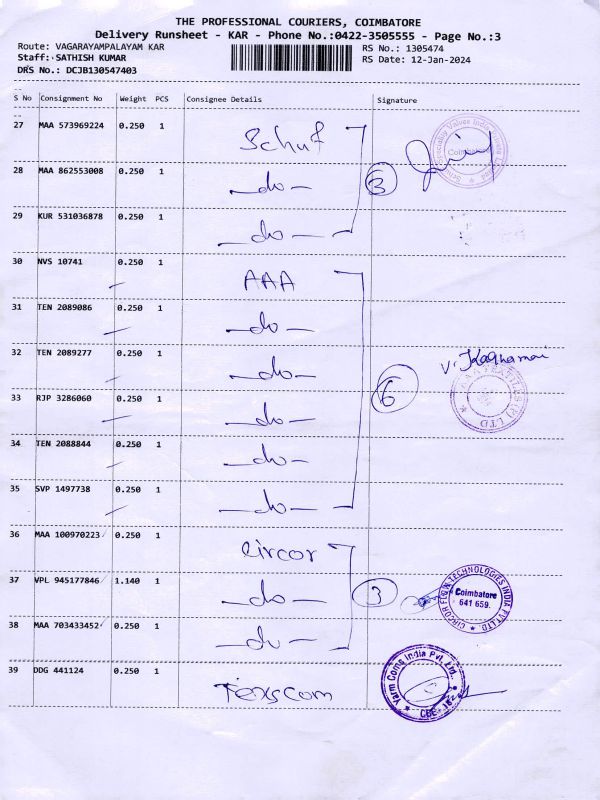 THE PROFESSIONAL COURIERS, COIMBATORE
Delivery Runsheet - KAR - Phone No.:0422-3505555 - Page No.:3
Route: VAGARAYAMPALAYAM KAR RS No.: 1305474
Staff: SATHISH KUMAR RS Date: 12-Jan-2024
DRS No.: DCJB130547403
S No Consignment No Weight PCS Consignee Details Signature
27 MAA 573969224 0.250 1 Schuf
28 MAA 862553008 0.250 1 -do- 3
29 KUR 531036878 0.250 1 -do-
30 NVS 10741 0.250 1 AAA
31 TEN 2089086 0.250 1 -do-
32 TEN 2089277 0.250 1 -do-
33 RJP 3286060 0.250 1 -do- 6
34 TEN 2088844 0.250 1 -do-
35 SVP 1497738 0.250 1 -do-
36 MAA 100970223 0.250 1 Circor
37 VPL 945177846 1.140 1 -do- 3
CIRCOR FLOW TECHNOLOGIES INDIA PVT LTD.
Coimbatore
641 659.
38 MAA 703433452 0.250 1 -do-
39 DDG 441124 0.250 1 Texscom
India Pvt. Ltd.
CBE